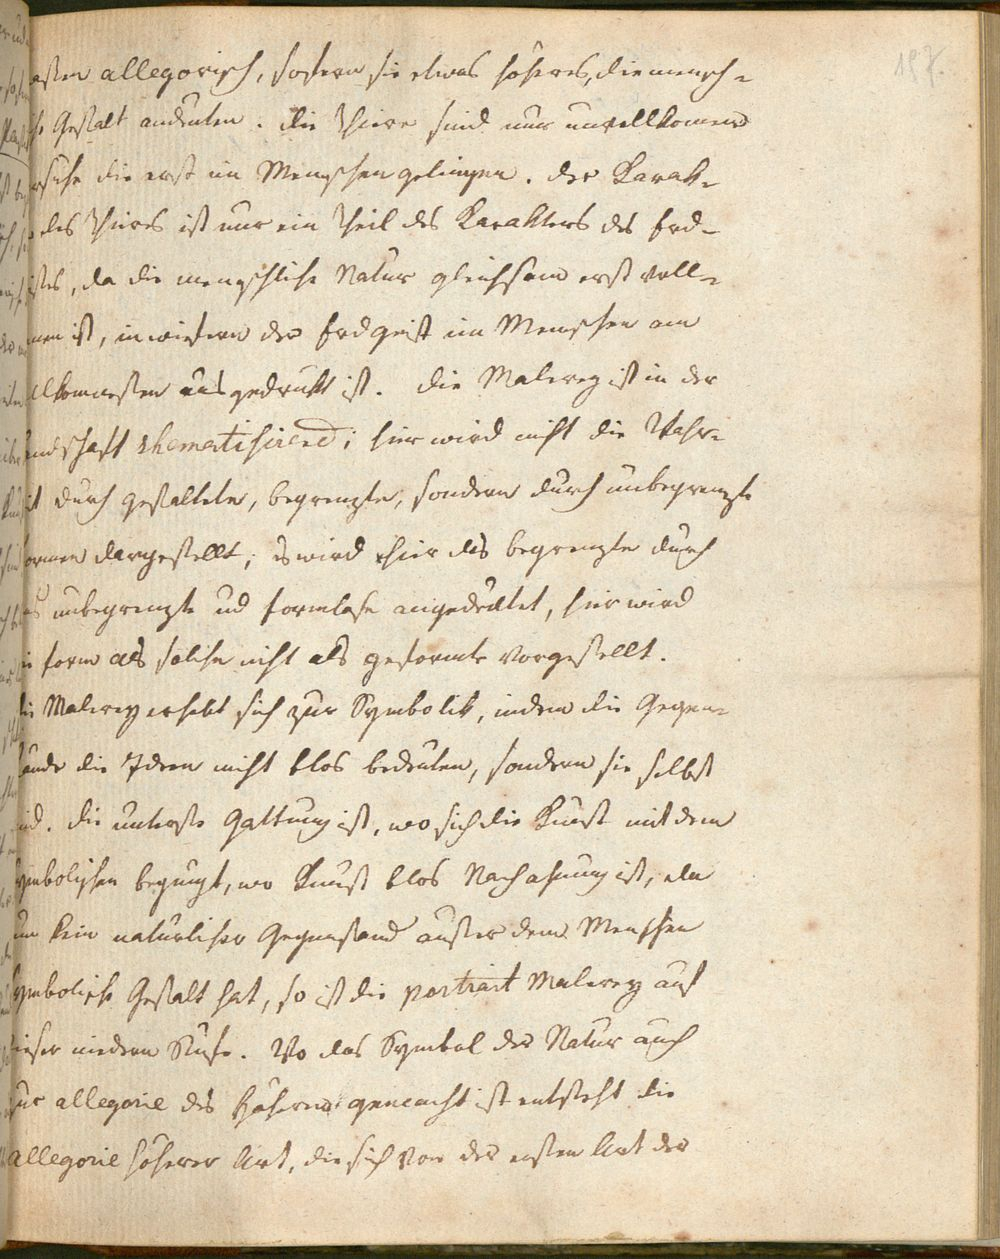 197.
assen allegorisch, sofern sie etwas höheres, die mensch-
che Gestalt andeuten. die Thiere sind nur unvollkomene
rsuche die erst im Menschen gelingen. der Karak-
des Thieres ist nur ein Theil des Karakters des Erd-
istes, da die menschliche Natur gleichsam erst voll-
men ist, inwiefern der Erdgeist im Menschen am
llkomensten ausgedrukt ist. die Malerey ist in der
andschaft shematisirend; hier wird nicht die Wahr-
it durch gestaltete, begrenzte, sondern durch unbegrenzte
ormen dargestellt; es wird hier das begrenzte durch
as unbegrenzte und formlose angedeutet, hier wird
ie form als solche nicht als geformte vorgestellt.
die Malerey erhebt sich zur Symbolik, indem die Gegen-
tände die Ideen nicht blos bedeuten, sondern sie selbst
nd. die unterste Gattung ist, wo sich die Kunst mit dem
ymbolischen begnügt, wo Kunst blos Nachahmung ist, da
un kein natürlicher Gegenstand ausser dem Menschen
ymbolische Gestalt hat, so ist die portrait Malerey auf
ieser niedern Stufe. Wo das Symbol der Natur auch
zur allegorie des höhern gemacht ist entsteht die
allegorie höherer Art, die sich von der ersten Art der